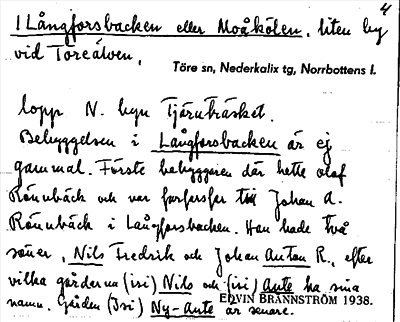 4
1 Långforsbacken eller Moåkölen, liten by
vid Töreälven,
Töre sn, Nederkalix tg, Norrbottens l.
lopp N. byn Tjärnträsket.
Bebyggelsen i Långforsbacken är ej
gammal. Förste bebyggaren där hette Olof
Rönnbäck och var farfarsfar till Johan A.
Rönnbäck i Långforsbacken. Han hade två
söner, Nils Fredrik och Johan Anton R., efter
vilka gårderna (isi) Nils och (isi) Ante ha sina
namn. Gården (Isi) Ny-Ante är senare.
EDVIN BRÄNNSTRÖM 1938.